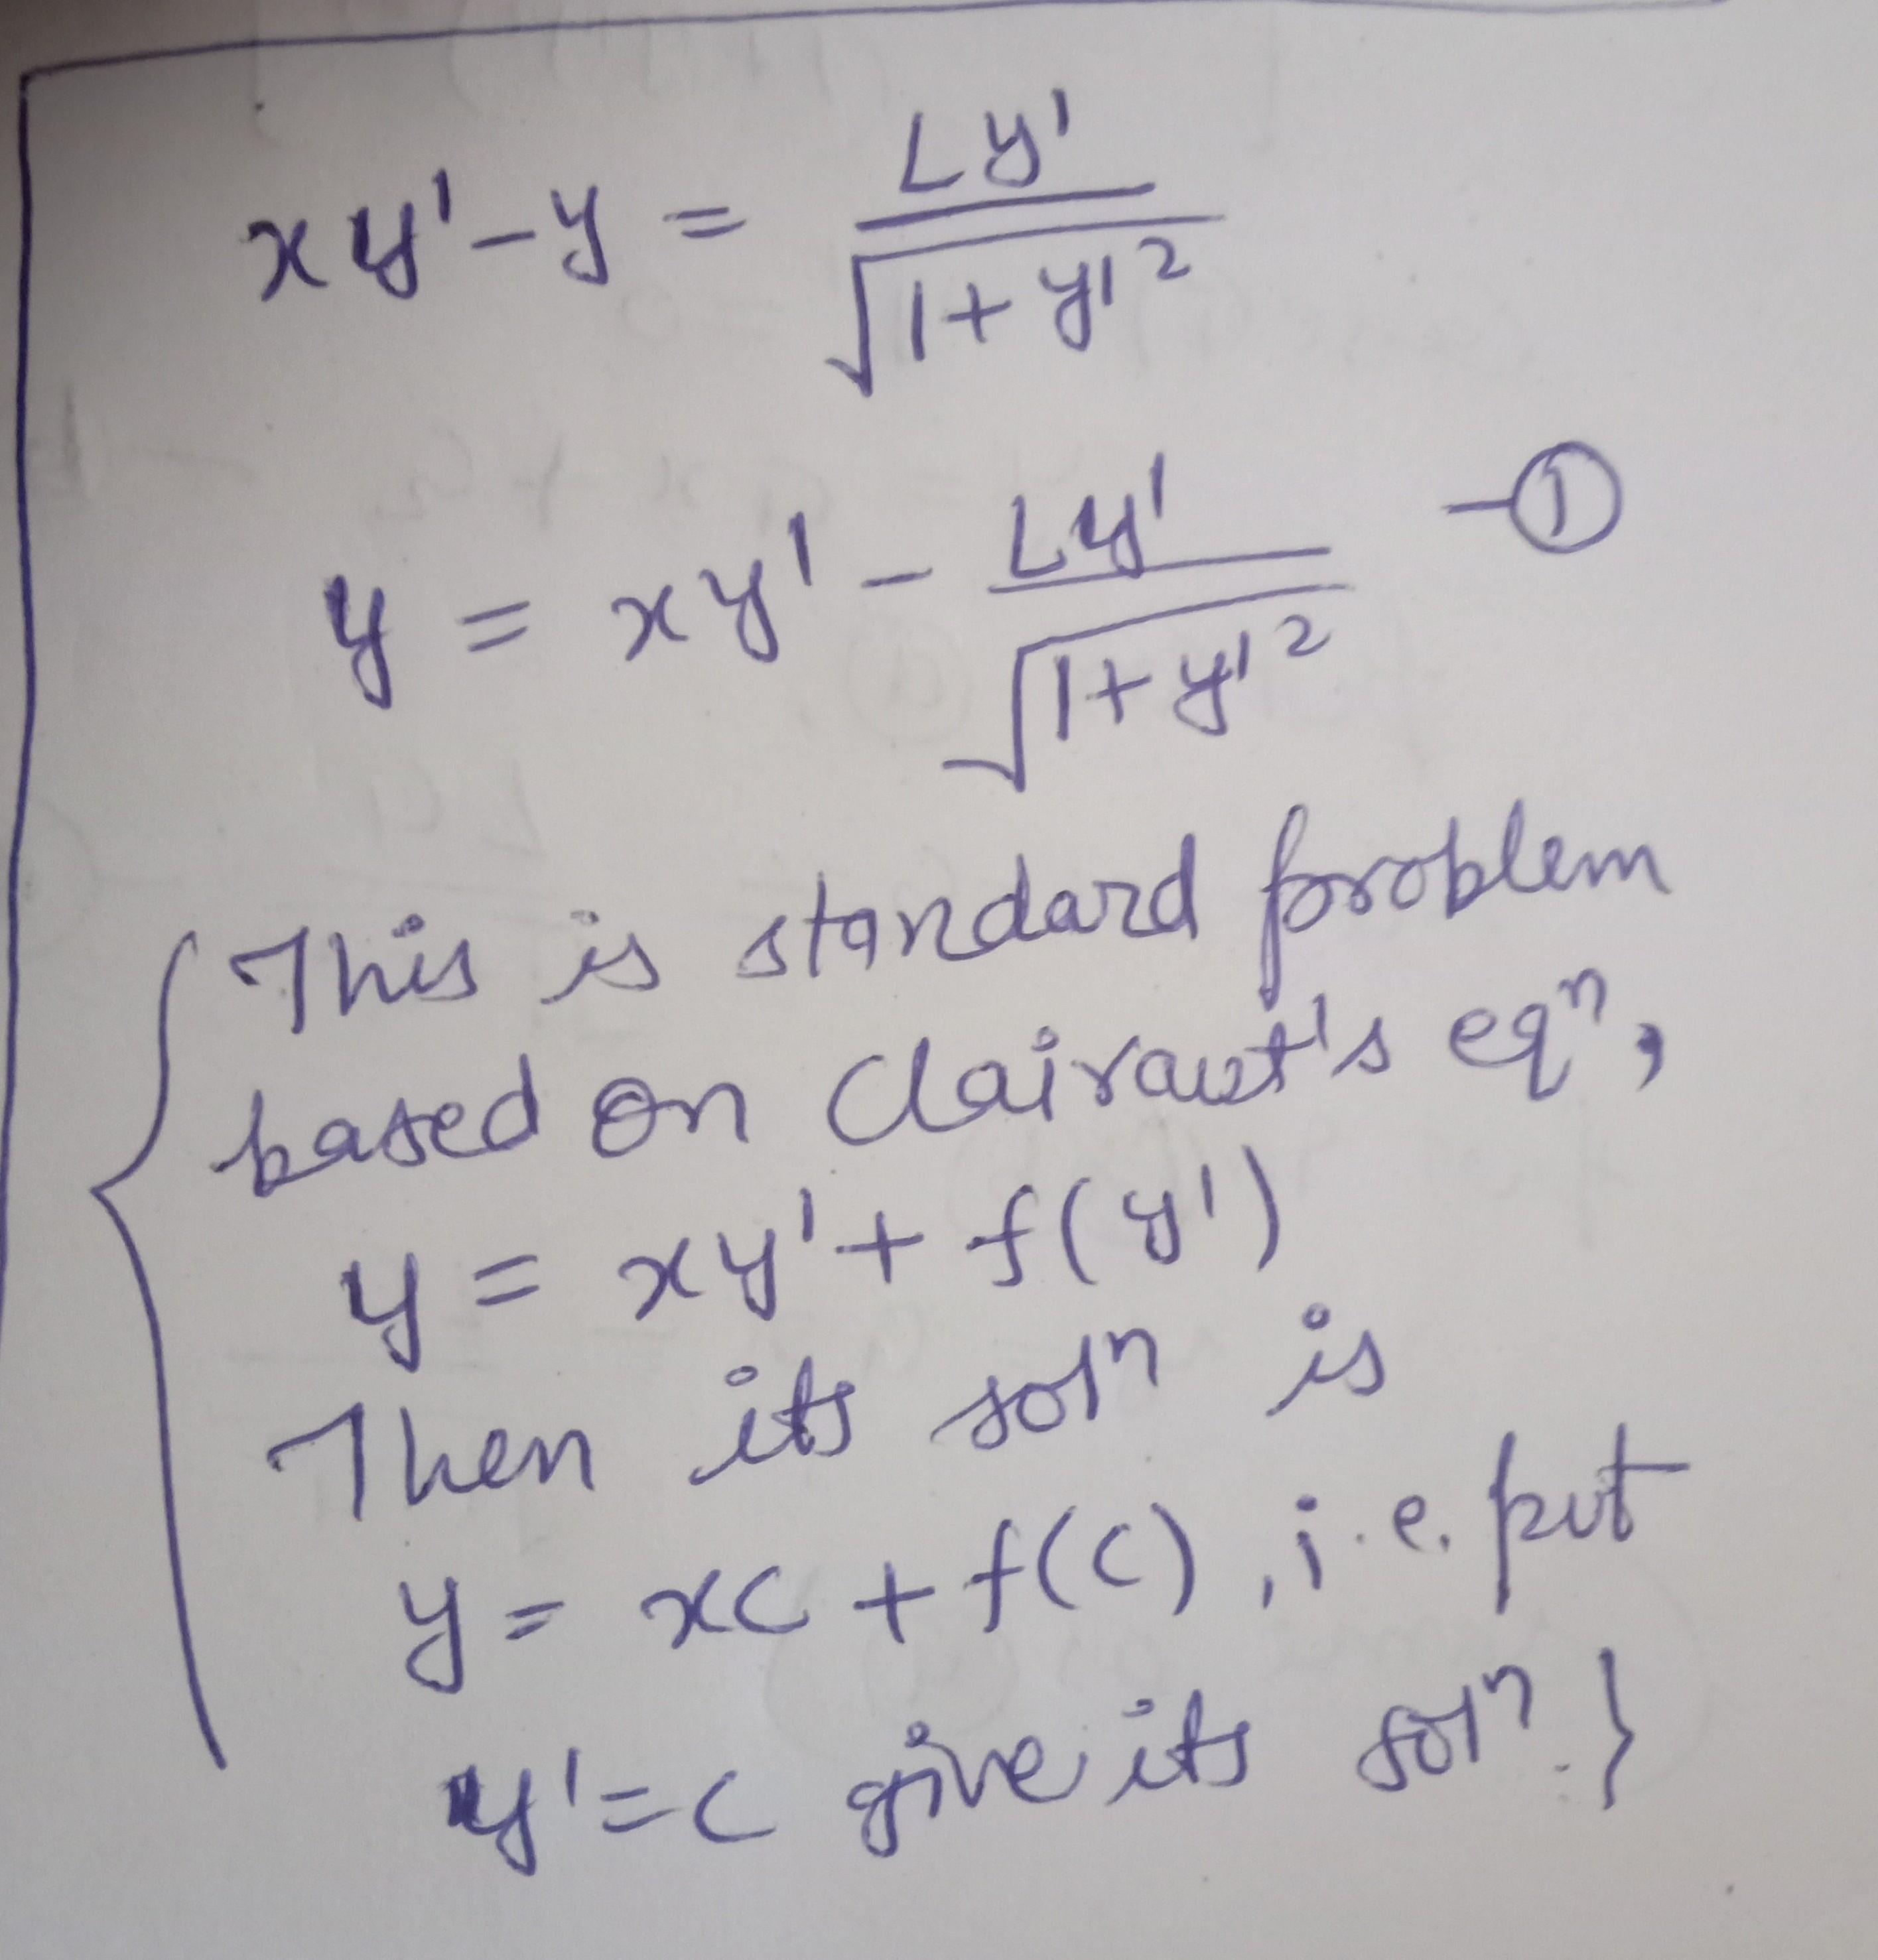 xy' - y = Ly' / √(1 + y'²)
y = xy' - Ly' / √(1 + y'²) — ①
{ This is standard problem
based on Clairaut's eqⁿ,
y = xy' + f(y')
Then its solⁿ is
y = xc + f(c), i.e. put
y' = c give its solⁿ. }